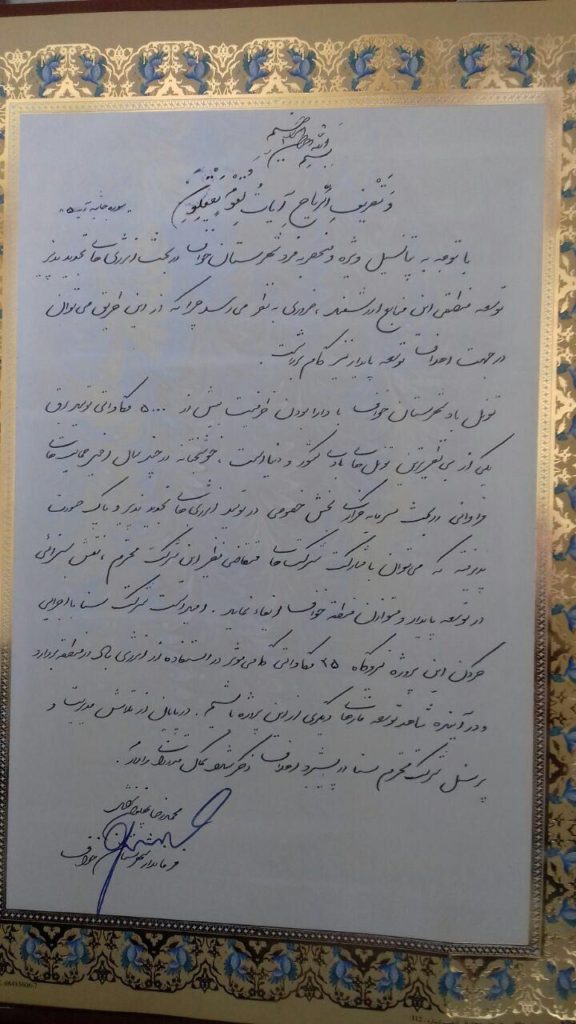 بسم الله الرحمن الرحیم
وَ تَصْریفِ الرّیاحِ آیاتٌ لِقَوْمٍ یَعْقِلُونَ "سوره جاثیه آیه ۵"
با توجه به پتانسیل ویژه و منحصر به فرد شهرستان خواف در بحث انرژی های تجدید پذیر
توسعه منطقی این منابع ارزشمند، ضروری به نظر می رسد چرا که از این طریق می توان
در جهت اهداف توسعه پایدار نیز گام برداشت.
تونل باد شهرستان خواف با دارا بودن ظرفیت بیش از ۵۰۰۰ مگاواتی تولید برق
یکی از بی نظیرترین تونل های باد کشور و دنیاست، خوشبختانه در چند سال اخیر فعالیت های
فراوانی در بحث سرمایه گذاری بخش خصوصی در تولید انرژی های تجدید پذیر و پاک صورت
پذیرفته که می توان با مشارکت شرکت های متقاضی نظیر این شرکت محترم، نقش بسزائی
در توسعه پایدار و متوازن منطقه خواف ایفاء نماید. امید است شرکت مپنا با اجرایی
کردن این پروژه نیروگاه ۲۵ مگاواتی گامی موثر در استفاده از انرژی بادی در منطقه بردارد
و در آینده شاهد توسعه فازهای دیگری از این پروژه باشیم. در پایان از تلاش مدیریت و
پرسنل شرکت محترم مپنا در پیشبرد اهداف کمال تشکر را دارد.
محمدرضا
فرماندار شهرستان خواف